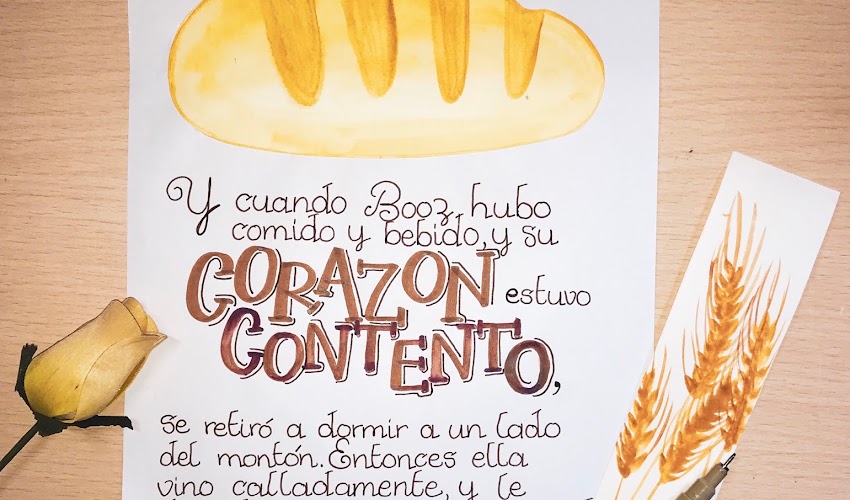 Y cuando Booz hubo
comido y bebido, y su
CORAZON estuvo
CONTENTO,
se retiró a dormir a un lado
del montón. Entonces ella
vino calladamente, y le